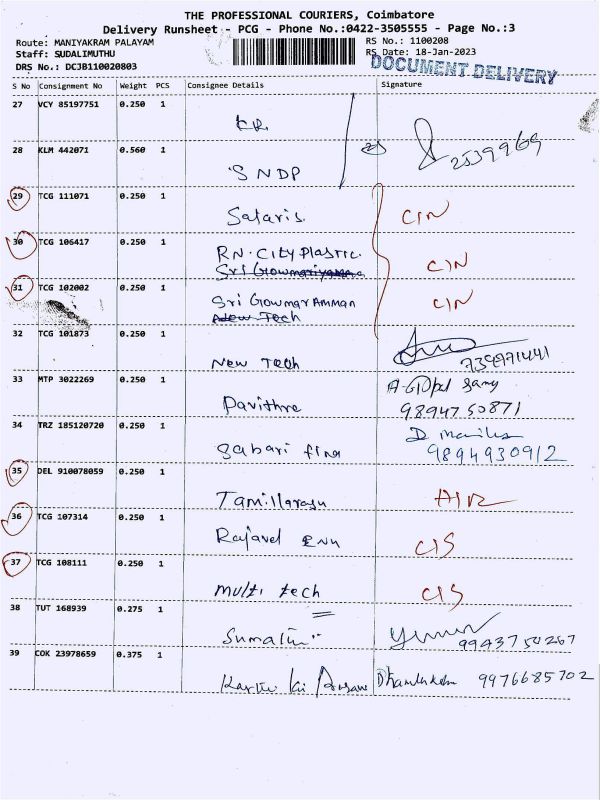 THE PROFESSIONAL COURIERS, Coimbatore
Delivery Runsheet - PCG - Phone No.:0422-3505555 - Page No.:3
Route: MANIYAKRAM PALAYAM RS No.: 1100208
Staff: SUDALIMUTHU RS Date: 18-Jan-2023
DRS No.: DCJB110020803 DOCUMENT DELIVERY
S No Consignment No Weight PCS Consignee Details Signature
27 VCY 85197751 0.250 1
28 KLM 442071 0.560 1 SNDP 2539969
29 TCG 111071 0.250 1 Sataris CIN
30 TCG 106417 0.250 1 RN. City Plastic. CIN
31 TCG 102002 0.250 1 Sri Gowmar Amman CIN
New Tech
32 TCG 101873 0.250 1 New Tech
33 MTP 3022269 0.250 1 Pavithre A. Gopal Samy
9894750871
34 TRZ 185120720 0.250 1 Sabari fina D
9894930912
35 DEL 910078059 0.250 1 Tamillarasu AIR
36 TCG 107314 0.250 1 Rajavel CIS
37 TCG 108111 0.250 1 multi tech CIS
38 TUT 168939 0.275 1 9943750267
39 COK 23978659 0.375 1 9976685702